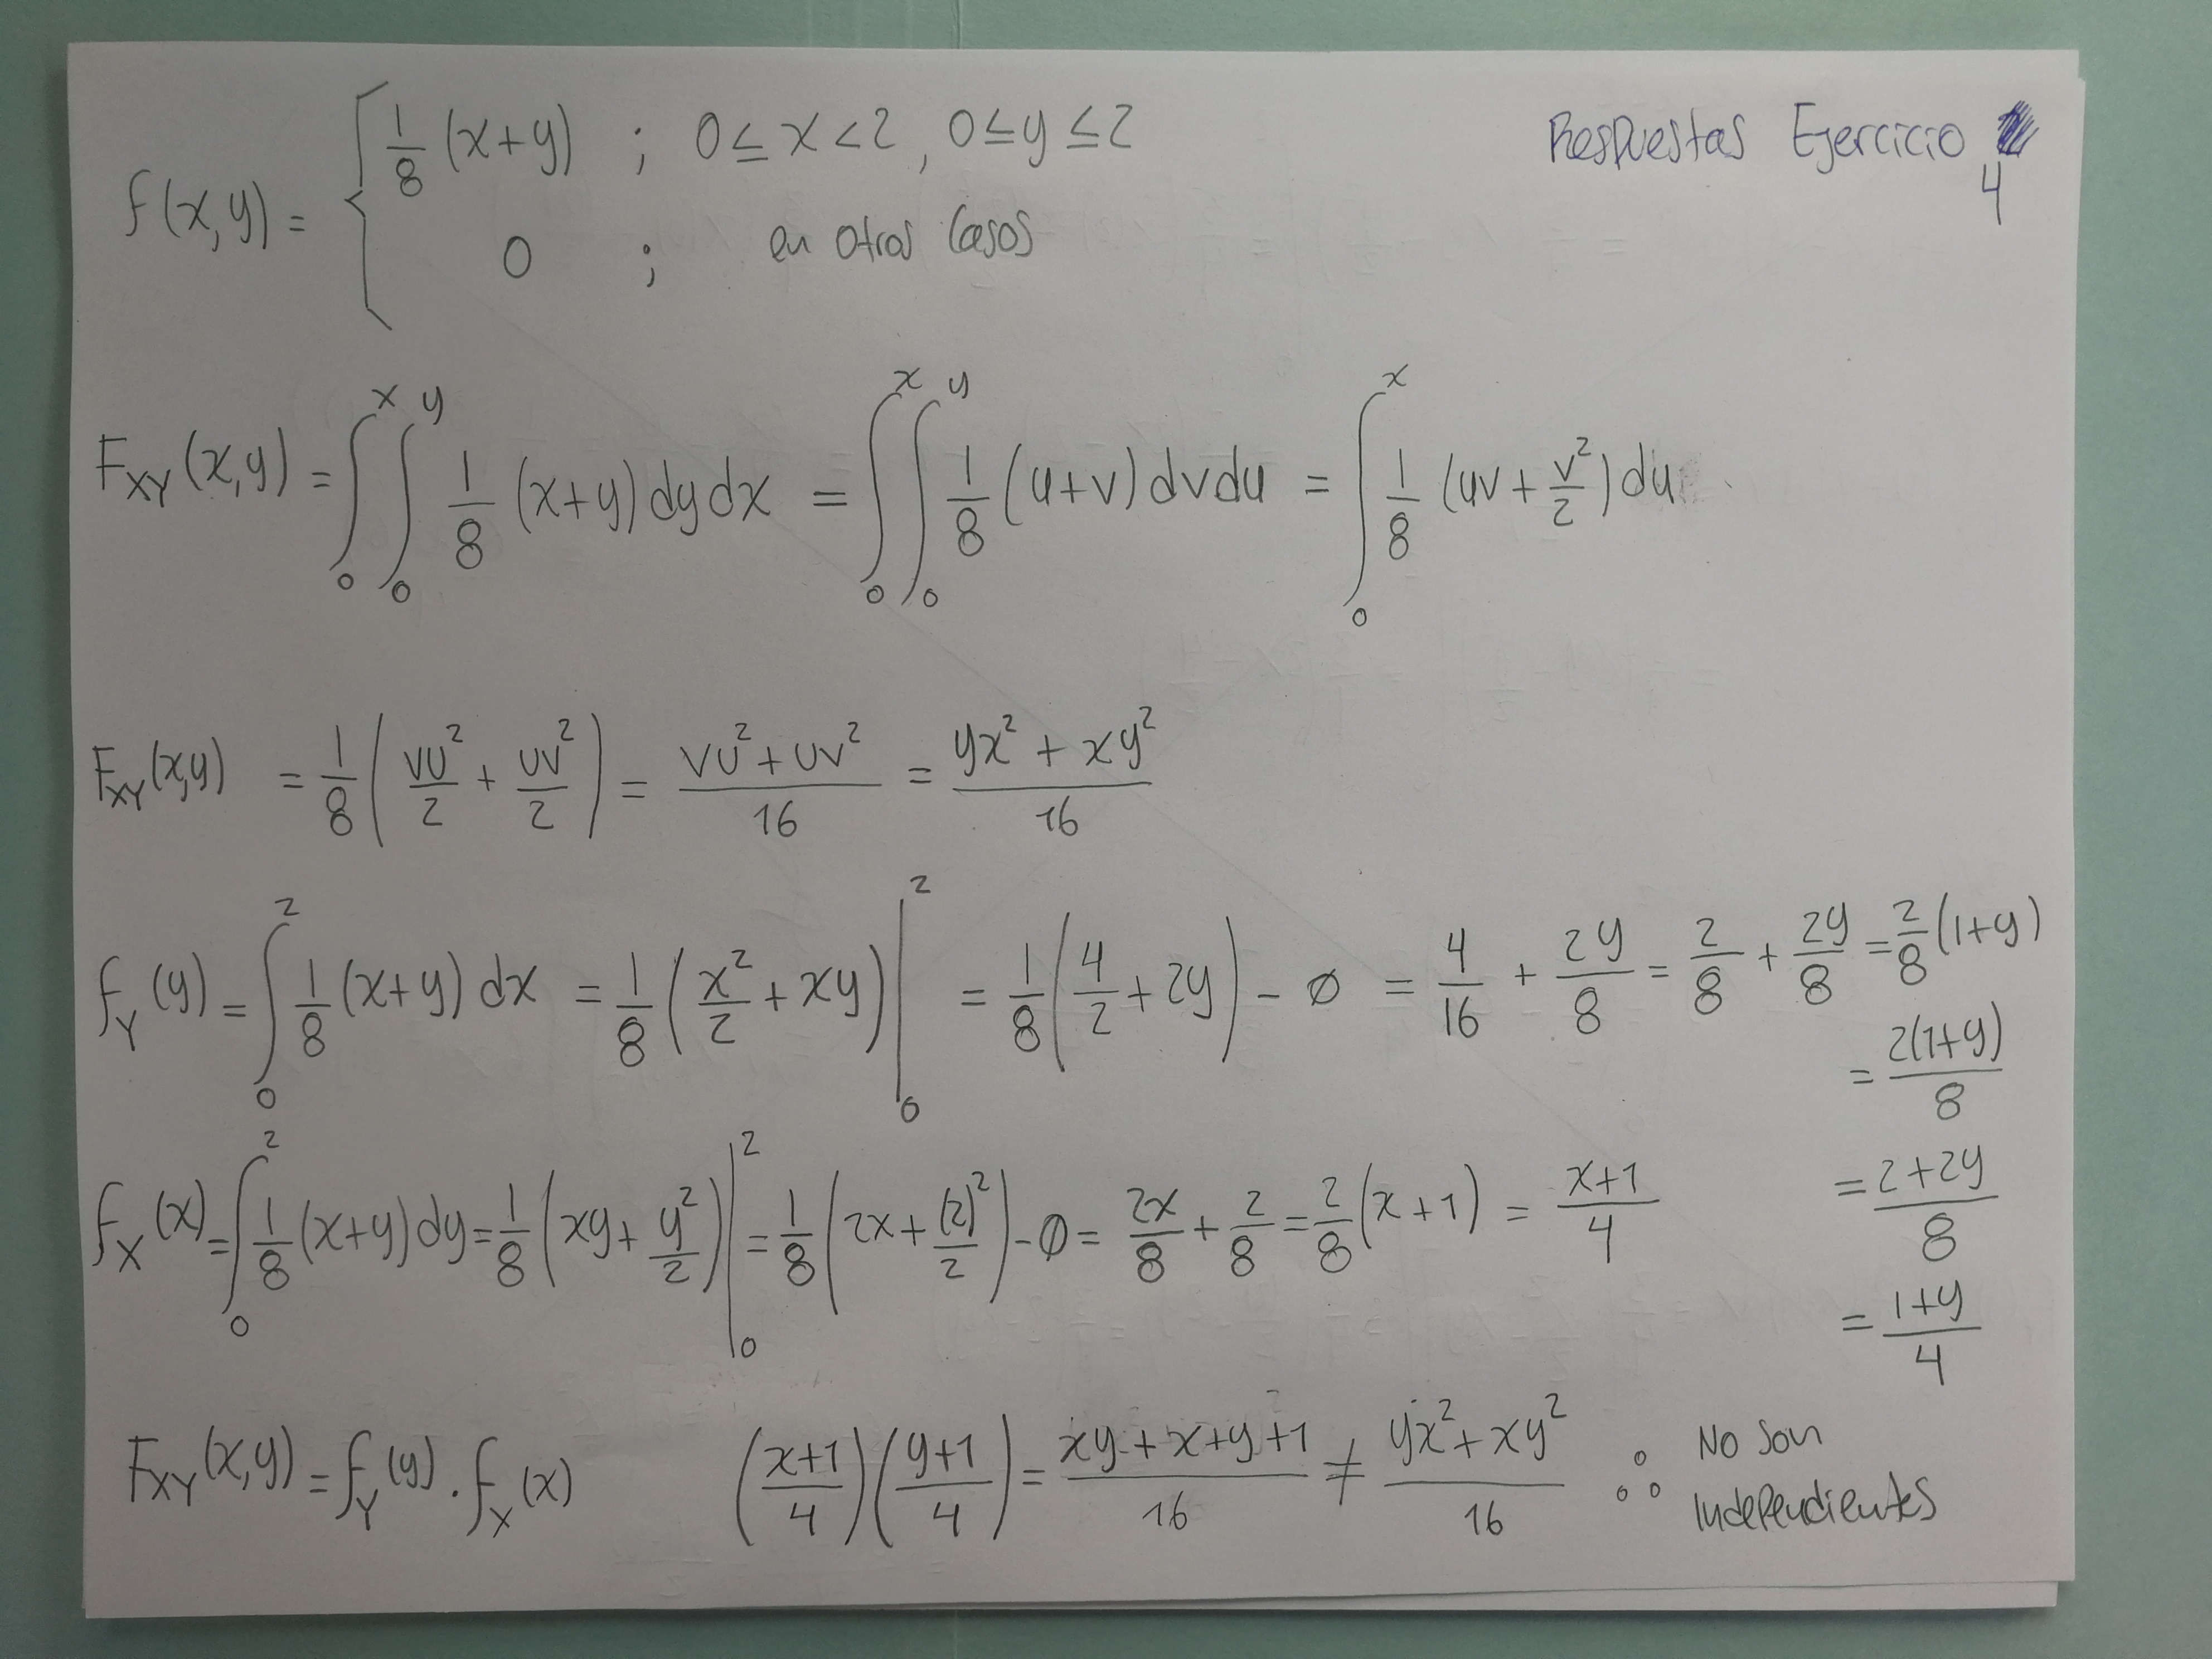 Respuestas Ejercicio 4
f(x,y) = { 1/8 (x+y) ; 0 ≤ x < 2, 0 ≤ y ≤ 2
0 ; en otros Casos
F_XY (x,y) = ∫_0^x ∫_0^y 1/8 (x+y) dy dx = ∫_0^x ∫_0^y 1/8 (u+v) dv du = ∫_0^x 1/8 (uv + v²/2) du
F_XY (x,y) = 1/8 (vu²/2 + uv²/2) = (vu² + uv²)/16 = (yx² + xy²)/16
f_Y (y) = ∫_0^2 1/8 (x+y) dx = 1/8 (x²/2 + xy) |_0^2 = 1/8 (4/2 + 2y) - ∅ = 4/16 + 2y/8 = 2/8 + 2y/8 = 2/8 (1+y)
= 2(1+y)/8
= (2+2y)/8
= (1+y)/4
f_X (x) = ∫_0^2 1/8 (x+y) dy = 1/8 (xy + y²/2) |_0^2 = 1/8 (2x + (2)²/2) - ∅ = 2x/8 + 2/8 = 2/8 (x+1) = (x+1)/4
F_XY (x,y) = f_Y (y) . f_X (x) ((x+1)/4) ((y+1)/4) = (xy + x + y + 1)/16 ≠ (yx² + xy²)/16 ∴ No son
Independientes